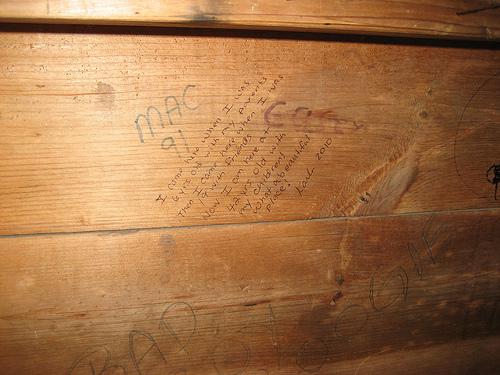 MAC
91
I came here when I was
6 yrs old with my parents
Then I came here when I was
19 with friends
Now I am here at
42 yrs old with
my children!
What a beautiful
place!
2010
BAD